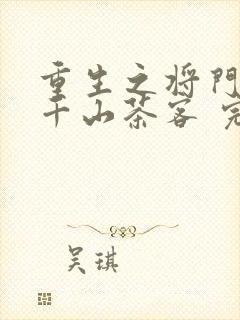 重生之将门
千山茶客 完
吴琪